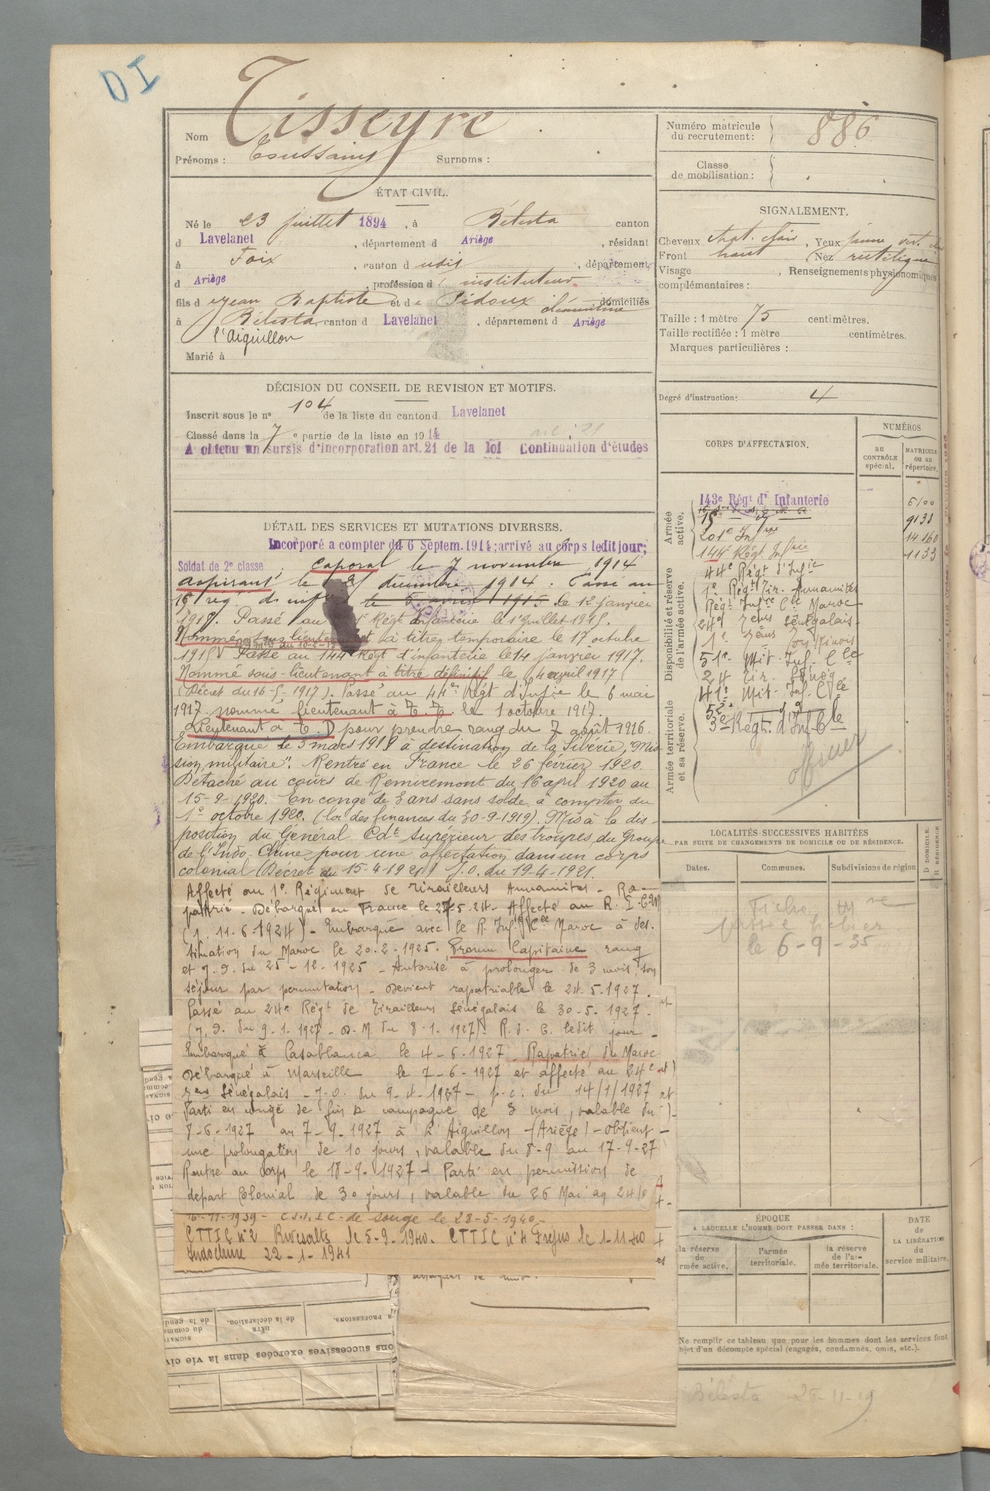 DI
Nom Tisseyre
Prénoms : Toussaint Surnoms :
Numéro matricule du recrutement: 886
Classe de mobilisation :
ÉTAT CIVIL.
Né le 23 juillet 1894, à Bélesta canton
d Lavelanet, département d Ariège, résidant
à Foix, canton d udit, département
d Ariège, profession d instituteur
fils d e Jean Baptiste et de Pidoux Clémentine, domiciliés
à Bélesta canton d Lavelanet, département d Ariège
l'Aiguillon
Marié à
SIGNALEMENT.
Cheveux chat. clair, Yeux jaune vert
Front haut Nez rectiligne
Visage Renseignements physionomiques
complémentaires :
Taille : 1 mètre 75 centimètres.
Taille rectifiée : 1 mètre centimètres.
Marques particulières :
Degré d'instruction: 4
DÉCISION DU CONSEIL DE REVISION ET MOTIFS.
Inscrit sous le n° 104 de la liste du canton d Lavelanet
Classé dans la 7e partie de la liste en 1914
A obtenu un sursis d'incorporation art. 21 de la loi Continuation d'études
CORPS D'AFFECTATION.
NUMÉROS
au CONTRÔLE spécial.
MATRICULE ou au répertoire.
Armée active.
Disponibilité et réserve de l'armée active.
Armée territoriale et sa réserve.
143e Régt d' Infanterie 6100
15e 9131
201e Infie 14160
144e Régt Infie 1133
44e Régt d'Infie
1e Régt Tir. Annamites
Régt Infie Cle Maroc
24e Zeurs Sénégalais
51e Mit. Inf. Cle
24 Tir. Sénég
41e Mit. Inf. Cle
3e Régt. d'Inf Cle
officier
DÉTAIL DES SERVICES ET MUTATIONS DIVERSES.
Incorporé a compter du 6 Septem. 1914; arrivé au corps ledit jour;
Soldat de 2e classe; caporal le 7 novembre 1914
aspirant le décembre 1914. Passé au
le 12 janvier
1915. Passé au Régt Infanterie le 1 juillet 1915.
Nommé sous lieutenant à titre temporaire le 17 octobre
1915. Passé au 144e Régt d'infanterie le 14 janvier 1917.
Nommé sous-lieutenant à titre définitif le 4 avril 1917
(Décret du 16-5-1917). Passé au 44e Régt d'Infie le 6 mai
1917. nommé lieutenant à T. T. le 1 octobre 1917.
Lieutenant à T. D pour prendre rang du 7 août 1916.
Embarqué le 3 mars 1918 à destination de la Sibérie, "Mis
sion militaire". Rentré en France le 26 février 1920.
Détaché au cours de Remiremont du 16 april 1920 au
15-9-1920. En congé de 3 ans sans solde à compter du
1e octobre 1920. (loi des finances du 30-9-1919). Mis à la dis-
position du Général Cdt supérieur des troupes du Groupe
de l'Indo Chine pour une affectation dans un corps
colonial (Décret du 15-4-1921) J.O. du 19-4-1921.
Affecté au 1e Régiment de Tirailleurs Annamites - Ra-
patrié - Débarqué en France le 27-5-24 - Affecté au R. I. C M
(1. 11.6.1924) - Embarqué avec le R. Inf Cle Maroc à des-
tination du Maroc le 20-2-1925. Promu Capitaine rang
du 25-12-1925 - Autorisé à prolonger de 3 mois son
séjour par permutation. Devient rapatriable le 24.5.1927.
Passé au 24e Régt de Tirailleurs Sénégalais le 30-5-1927.
(J.O. du 9.1.1927 - D.M. du 8-1.1927). R. d. C. ledit jour -
Embarqué à Casablanca le 4-6-1927. Rapatrié du Maroc
Débarqué à Marseille le 7-6-1927 et affecté au 24e
Sénégalais - J.O. du 9-1-1927 - p.c. du 14/1/1927
Parti en congé de fin de campagne de 3 mois, valable du
8-6-1927 au 7-9-1927 à L'Aiguillon (Ariège) - obtient
une prolongation de 10 jours, valable du 8-9 au 17-9-27
Rentre au corps le 18-9-1927 - Parti en permission de
depart Colonial de 30 jours, valable du 26 Mai au 24/6
10-11-1939 - de Souge le 28-5-1940 -
CTTIC n°2 Rivesaltes le 5-9-1940. CTTIC n°4 Fréjus le 1-11-40
Indochine 22-1-1941
LOCALITÉS SUCCESSIVES HABITÉES
PAR SUITE DE CHANGEMENTS DE DOMICILE OU DE RÉSIDENCE.
Dates. Communes. Subdivisions de région
D DOMICILE R RÉSIDENCE
Fiche
le 6-9-35
ÉPOQUE
A LAQUELLE L'HOMME DOIT PASSER DANS :
la réserve de rmée active.
l'armée territoriale.
la réserve de l'armée territoriale.
DATE de LA LIBÉRATION du service militaire.
Ne remplir ce tableau que pour les hommes dont les services font
bjet d'un décompte spécial (engagés, condamnés, omis, etc.).
Bélesta 28-11-19
ons successives exercées dans la vie civ